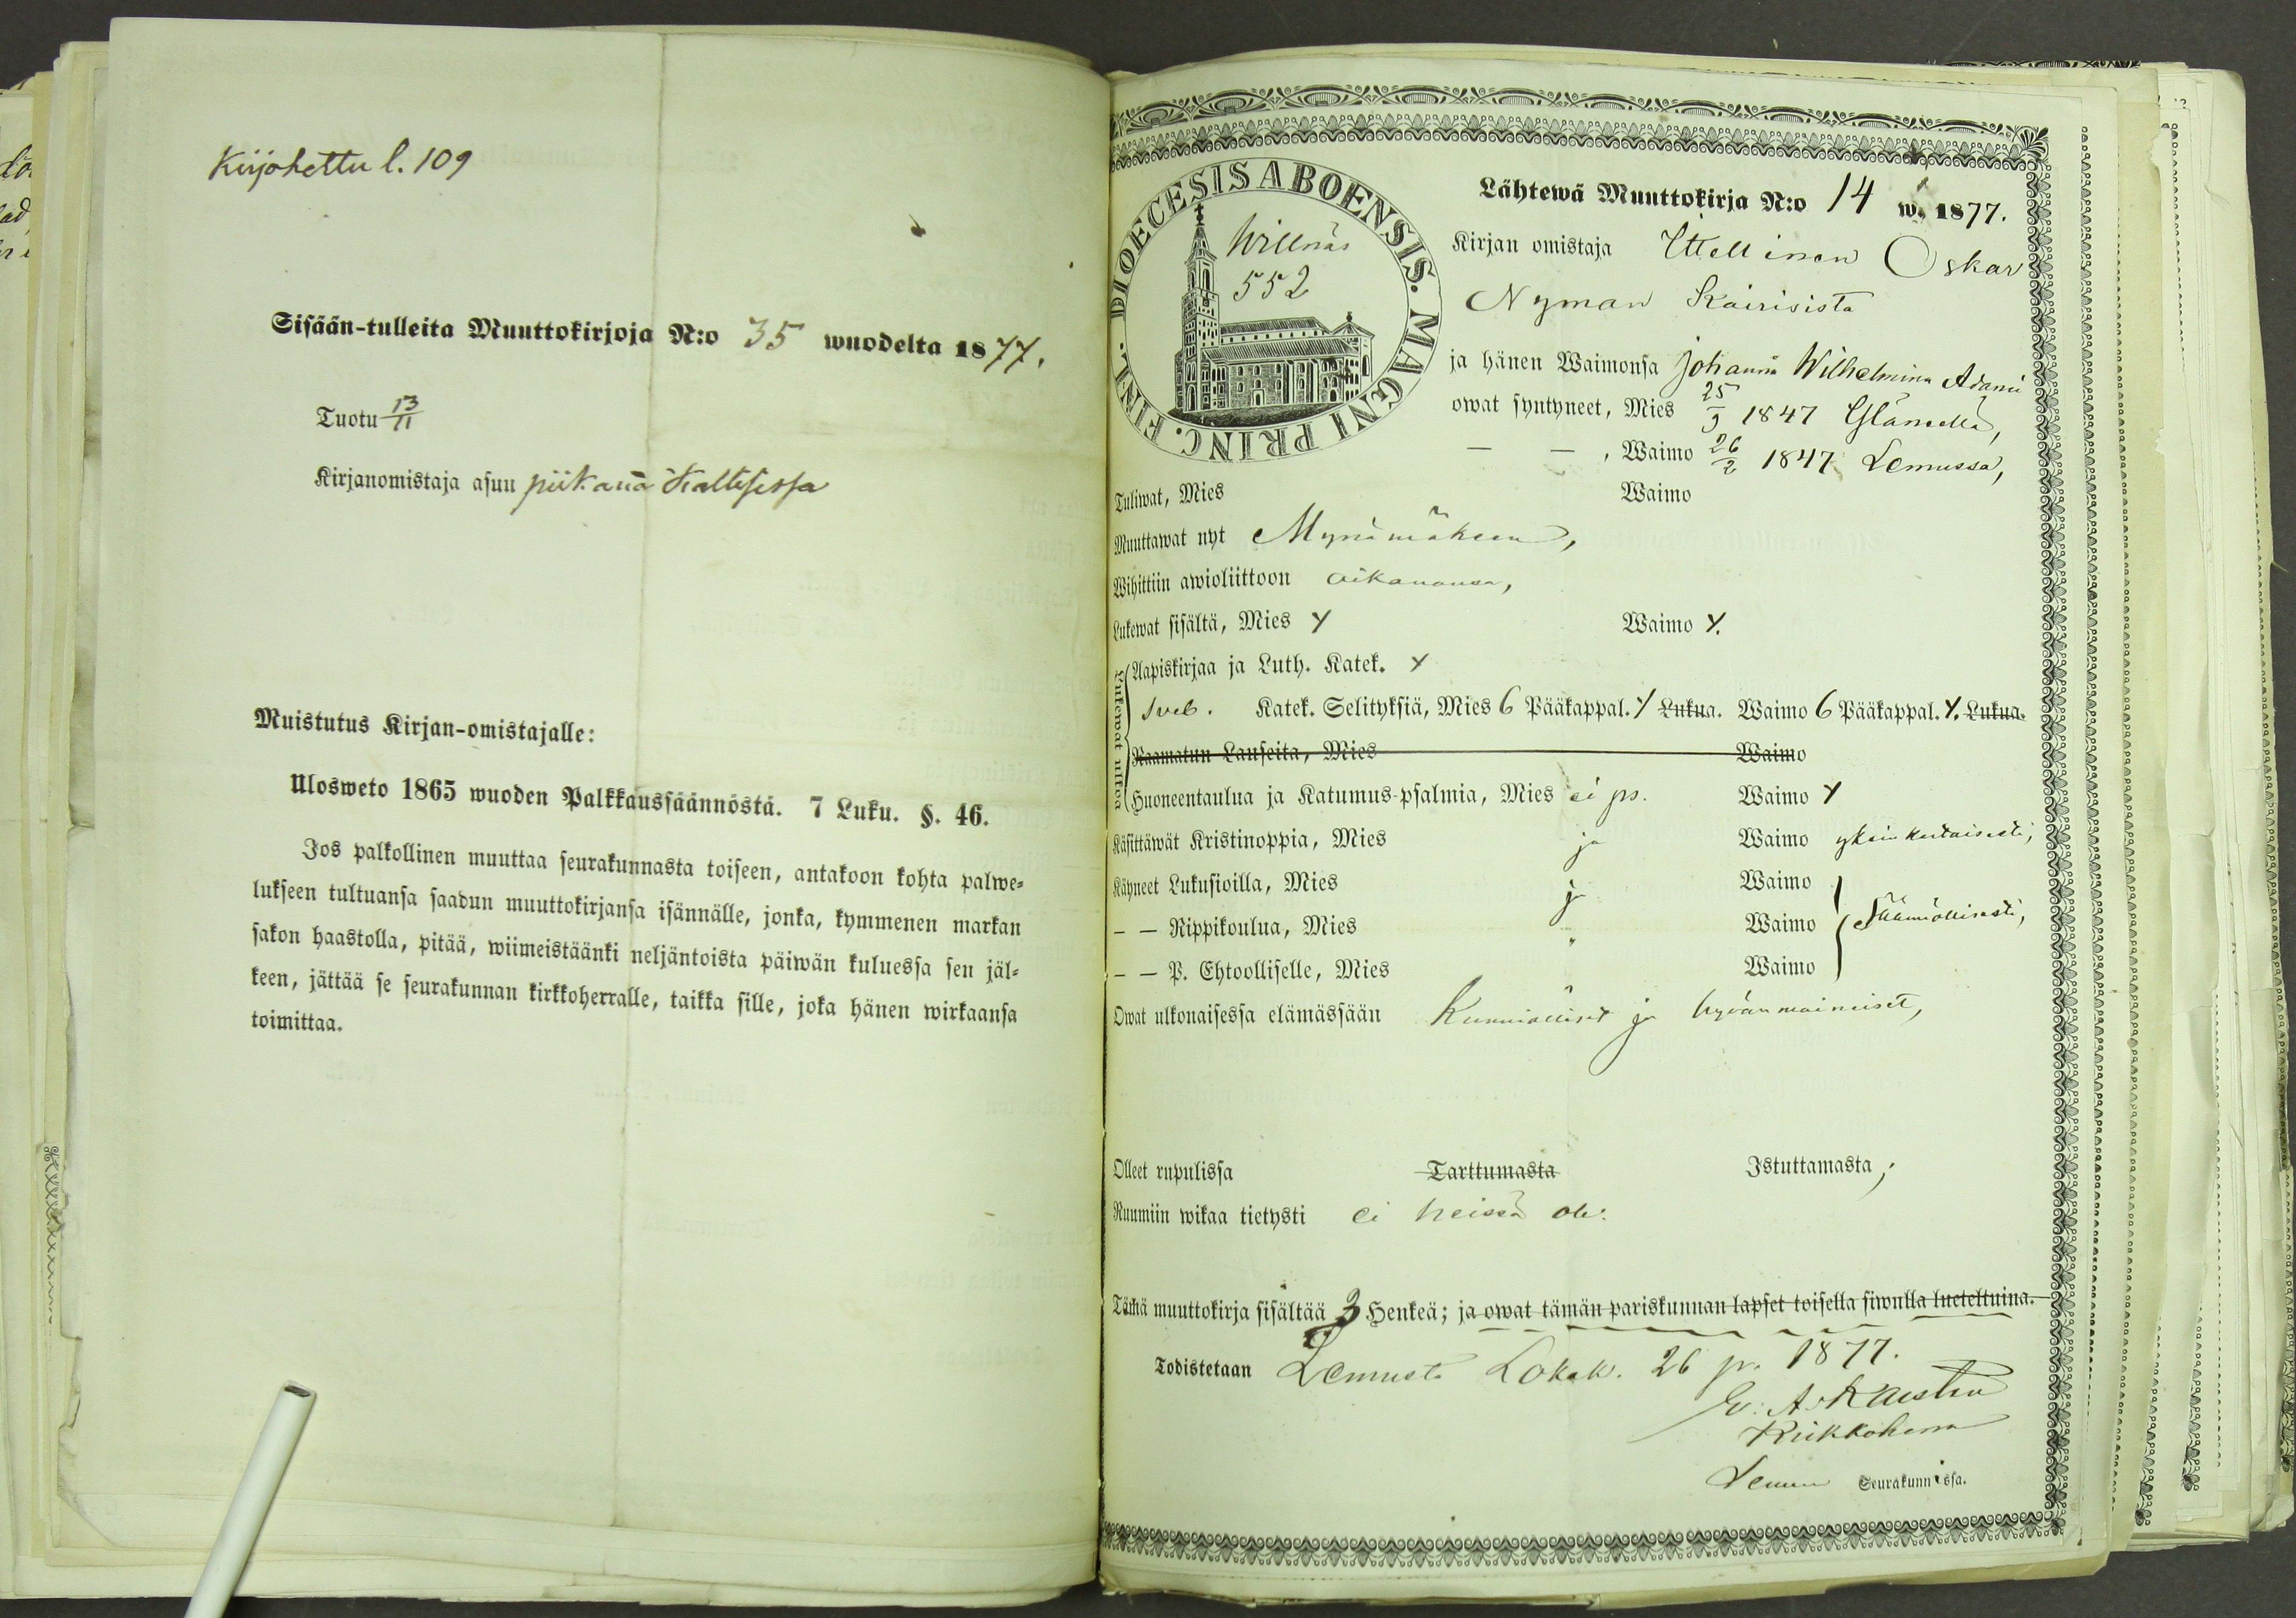 Kirjoitettu l. 109
Sisään-tulleita Muuttokirjoja N:o 35 wuodelta 1877.
Tuotu 13/11
Kirjanomistaja asuu piikana Kallisissa
Muistutus Kirjan-omistajalle:
Ulosweto 1865 wuoden Palkkaussäännöstä. 7 Luku. §. 46.
Jos palkollinen muuttaa seurakunnasta toiseen, antakoon kohta palwe-
lukseen tultuansa saadun muuttokirjansa isännälle, jonka, kymmenen markan
sakon haastolla, pitää, wiimeistäänki neljäntoista päiwän kuluessa sen jäl-
keen, jättää se seurakunnan kirkkoherralle, taikka sille, joka hänen wirkaansa
toimittaa.
DIOECESIS ABOENSIS. MAGNI PRINC. FINL.
Willnäs
552
Lähtewä Muuttokirja N:o 14 w. 1877.
Kirjan omistaja Itellinen Oskar
Nyman Kairisista
ja hänen Waimonsa Johanna Wilhelmina Adami
owat syntyneet, Mies 25/9 1847
— — , Waimo 26/2 1847 Lemussa,
Tuliwat, Mies Waimo
Muuttawat nyt Mynämäkeen,
Wihittiin awioliittoon aikanansa,
Lukewat sisältä, Mies Y Waimo Y.
Lukewat ultoa
Aapiskirjaa ja Luth. Katek. Y
Sveb. Katek. Selityksiä, Mies 6 Pääkappal. Y Lukua. Waimo 6 Pääkappal. Y. Lukua.
Raamatun Lauseita, Mies Waimo
Huoneentaulua ja Katumus-psalmia, Mies ei ps. Waimo Y
Käsittäwät Kristinoppia, Mies ja Waimo yksinkertaisesti,
Käyneet Lukusioilla, Mies ja Waimo
— — Rippikoulua, Mies " Waimo Säännöllisesti,
— — P. Ehtoolliselle, Mies Waimo
Owat ulkonaisessa elämässään Kunnialliset ja hyvänmainiset,
Olleet rupulissa Tarttumasta Istuttamasta,
Ruumiin wikaa tietysti ei heissä ole.
Tämä muuttokirja sisältää 3 Henkeä; ja owat tämän pariskunnan lapset toisella siwulla lueteltuina.
Todistetaan Lemusta Lokak. 26 p. 1877.
Kirkkoherra
Lemun Seurakunnissa.